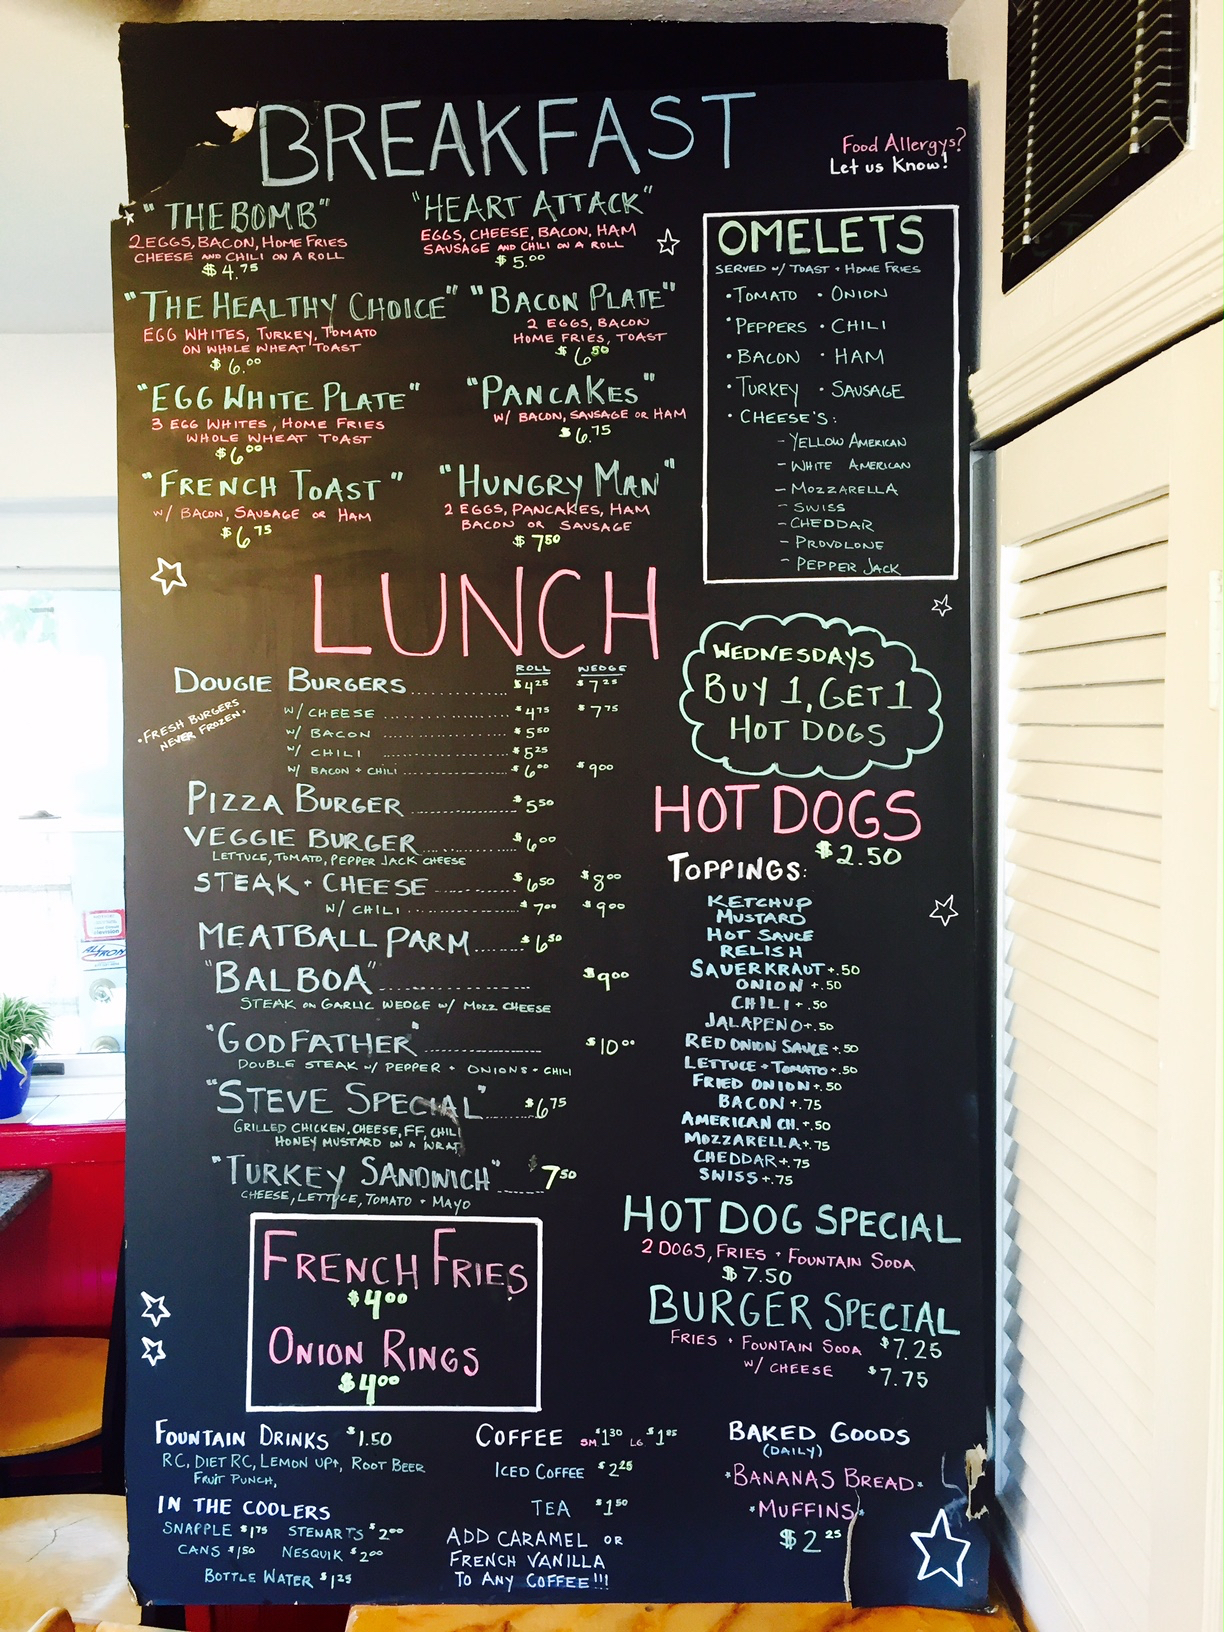 BREAKFAST
Food Allergys?
Let us Know!
"THE BOMB"
2 EGGS, BACON, HOME FRIES
CHEESE AND CHILI ON A ROLL
$4.75
"HEART ATTACK"
EGGS, CHEESE, BACON, HAM
SAUSAGE AND CHILI ON A ROLL
$5.00
"THE HEALTHY CHOICE"
EGG WHITES, TURKEY, TOMATO
ON WHOLE WHEAT TOAST
$6.00
"BACON PLATE"
2 EGGS, BACON
HOME FRIES, TOAST
$6.50
"EGG WHITE PLATE"
3 EGG WHITES, HOME FRIES
WHOLE WHEAT TOAST
$6.00
"PANCAKES"
W/ BACON, SAUSAGE OR HAM
$6.75
"FRENCH TOAST"
W/ BACON, SAUSAGE OR HAM
$6.75
"HUNGRY MAN"
2 EGGS, PANCAKES, HAM
BACON OR SAUSAGE
$7.50
OMELETS
SERVED W/ TOAST + HOME FRIES
• TOMATO • ONION
• PEPPERS • CHILI
• BACON • HAM
• TURKEY • SAUSAGE
• CHEESE'S:
- YELLOW AMERICAN
- WHITE AMERICAN
- MOZZARELLA
- SWISS
- CHEDDAR
- PROVOLONE
- PEPPER JACK
LUNCH
ROLL WEDGE
DOUGIE BURGERS $4.25 $7.25
• FRESH BURGERS
NEVER FROZEN •
W/ CHEESE $4.75 $7.75
W/ BACON $5.50
W/ CHILI $5.25
W/ BACON + CHILI $6.00 $9.00
PIZZA BURGER $5.50
VEGGIE BURGER $6.00
LETTUCE, TOMATO, PEPPER JACK CHEESE
STEAK + CHEESE $6.50 $8.00
W/ CHILI $7.00 $9.00
MEATBALL PARM $6.50
"BALBOA" $9.00
STEAK ON GARLIC WEDGE W/ MOZZ CHEESE
"GODFATHER" $10.00
DOUBLE STEAK W/ PEPPER + ONIONS + CHILI
"STEVE SPECIAL" $6.75
GRILLED CHICKEN, CHEESE, FF, CHILI
HONEY MUSTARD ON A WRAP
"TURKEY SANDWICH" $7.50
CHEESE, LETTUCE, TOMATO + MAYO
FRENCH FRIES
$4.00
ONION RINGS
$4.00
WEDNESDAYS
BUY 1, GET 1
HOT DOGS
HOT DOGS
$2.50
TOPPINGS:
KETCHUP
MUSTARD
HOT SAUCE
RELISH
SAUERKRAUT +.50
ONION +.50
CHILI +.50
JALAPENO +.50
RED ONION SAUCE +.50
LETTUCE + TOMATO +.50
FRIED ONION +.50
BACON +.75
AMERICAN CH. +.50
MOZZARELLA +.75
CHEDDAR +.75
SWISS +.75
HOT DOG SPECIAL
2 DOGS, FRIES + FOUNTAIN SODA
$7.50
BURGER SPECIAL
FRIES + FOUNTAIN SODA $7.25
W/ CHEESE $7.75
FOUNTAIN DRINKS $1.50
RC, DIET RC, LEMON UP↑, ROOT BEER
FRUIT PUNCH,
IN THE COOLERS
SNAPPLE $1.75 STEWARTS $2.00
CANS $1.50 NESQUIK $2.00
BOTTLE WATER $1.25
COFFEE SM. $1.30 LG.
ICED COFFEE $2.25
TEA $1.50
ADD CARAMEL OR
FRENCH VANILLA
TO ANY COFFEE!!!
BAKED GOODS
(DAILY)
• BANANAS BREAD •
• MUFFINS •
$2.25